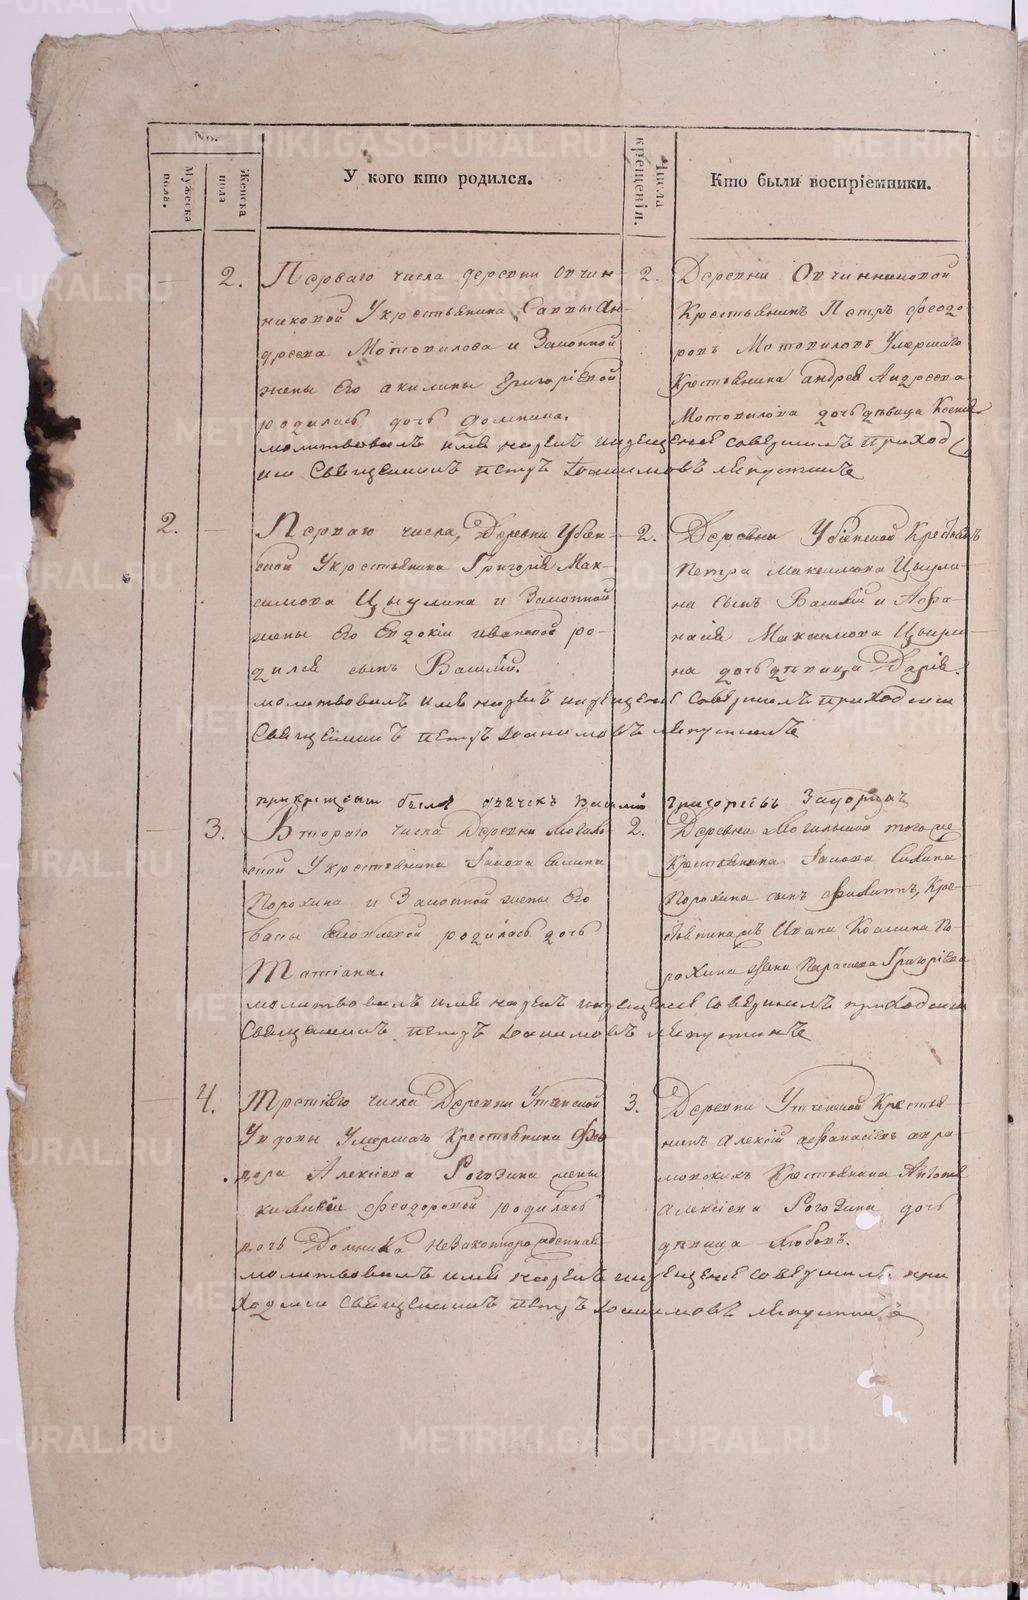 No.
Мужеска пола.
Женска пола
У кого кто родился.
Числа крещенія.
Кто были воспріемники.
2.
Перваго числа деревни Овчин-
никовой Укрестьянина Саввы Ан-
дреева Мотовилова и Законной
жены Его акилины Григоріевой
родилась дочь Домнина.
2.
Деревни Овчинниковой
Крестьянинъ Петръ Феодо
ровъ Мотовиловъ Умершаго
Крестьянина андрея Андреева
Мотовилова дочь дѣвица Ксенія
молитвовалъ имя нарекъ икрещеніе совершилъ приход
ски Священникъ петръ Іоакимовъ
2.
Перваго числа, Деревни Убіен-
ской Укрестьянина Григорія Мак-
симова Цыулина и Законной
жены Его Евдокіи ивановой ро-
дился сынъ Василій.
2.
Деревни Убіенской Крестьян
Петра Максимова Цыули-
на сынъ Василій и Афа-
насія Максимова Цыули
на дочь дѣвица Дарія.
молитвовалъ имя нарекъ икрещеніе совершилъ приходски
Священникъ петръ Іоакимовъ
прикрещеніи былъ Василій григорьевъ
3.
Втораго числа Деревни Могиль
ской Укрестьянина Іакова
Порохина и Законной жены Его
родилась дочь
Татіана.
2.
Деревни Могильской того же
Крестьянина Іакова
Порохина сынъ Филиппъ, Кре-
Ивана Козмина По-
рохина жена Парасковья Григоріева
молитвовалъ имя нарекъ икрещеніе совершилъ приходски
Священникъ петръ Іоакимовъ
4.
Третіяго числа Деревни Утченской
Увдовы Умершаго Крестьянина Фео
дора Алексіева Рогозина жены
Феодоровой родилась
дочь Домника незаконнорожденная
3.
Деревни Утченской Крестья-
нинъ Алексій Афанасіевъ авра-
мовскихъ Крестьянина Антона
Алексіева Рогозина дочь
дѣвица Любовь.
молитвовалъ имя нарекъ икрещеніе совершилъ при
ходски Священникъ петръ Іоакимовъ
METRIKI.GASO-URAL.RU